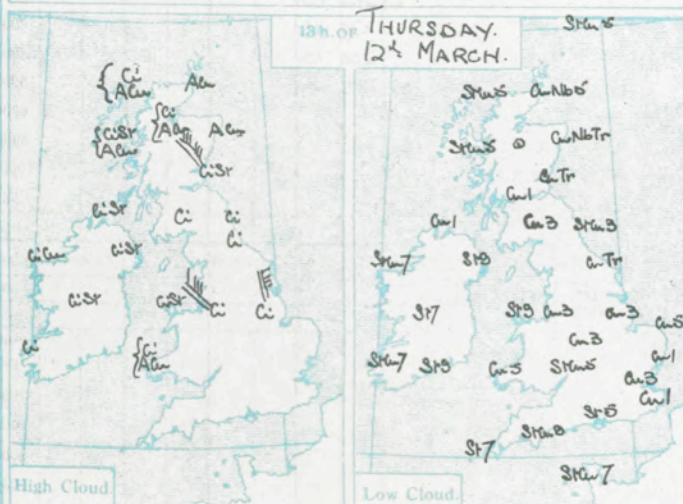 13h. OF THURSDAY.
12th MARCH.
Ci
ACu
ACu
Ci
ACu
CiSt
ACu
ACu
CiSt
CiSt
Ci
Ci
Ci
CiCu
CiSt
CiSt
CiSt
Ci
Ci
Ci
Ci
ACu
High Cloud.
StCu5
StCu5
CuNb5
StCu5
0
CuNbTr
CuTr
Cu1
Cu1
Cu3
StCu3
StCu7
St9
CuTr
St7
St9
Cu3
Cu3
Cu5
Cu3
Cu1
StCu7
St9
Cu5
StCu5
Cu3
Cu1
St5
StCu8
St7
StCu7
Low Cloud.